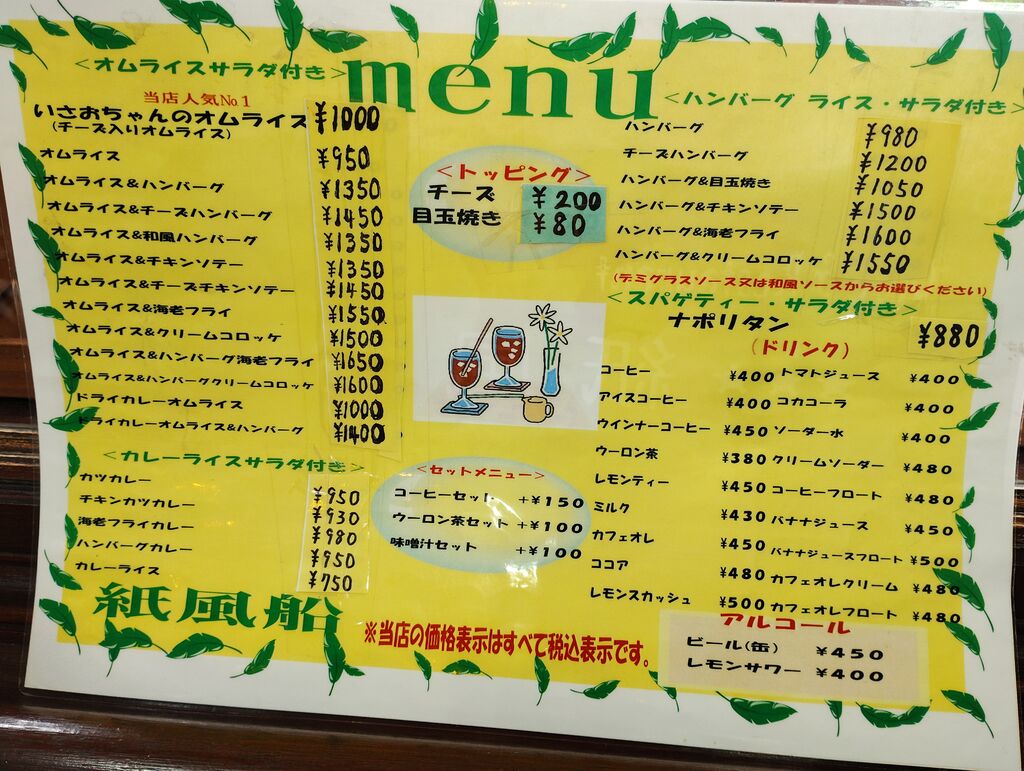 menu
<オムライスサラダ付き>
当店人気No.1
いさおちゃんのオムライス ¥1000
(チーズ入りオムライス)
オムライス ¥950
オムライス&ハンバーグ ¥1350
オムライス&チーズハンバーグ ¥1450
オムライス&和風ハンバーグ ¥1350
オムライス&チキンソテー ¥1350
オムライス&チーズチキンソテー ¥1450
オムライス&海老フライ ¥1550
オムライス&クリームコロッケ ¥1500
オムライス&ハンバーグ海老フライ ¥1650
オムライス&ハンバーグクリームコロッケ ¥1600
ドライカレーオムライス ¥1000
ドライカレーオムライス&ハンバーグ ¥1400
<カレーライスサラダ付き>
カツカレー ¥950
チキンカツカレー ¥930
海老フライカレー ¥980
ハンバーグカレー ¥950
カレーライス ¥750
紙風船
<トッピング>
チーズ ¥200
目玉焼き ¥80
<セットメニュー>
コーヒーセット +¥150
ウーロン茶セット +¥100
味噌汁セット +¥100
<ハンバーグ ライス・サラダ付き>
ハンバーグ ¥980
チーズハンバーグ ¥1200
ハンバーグ&目玉焼き ¥1050
ハンバーグ&チキンソテー ¥1500
ハンバーグ&海老フライ ¥1600
ハンバーグ&クリームコロッケ ¥1550
(デミグラスソース又は和風ソースからお選びください)
<スパゲティー・サラダ付き>
ナポリタン ¥880
(ドリンク)
コーヒー ¥400 トマトジュース ¥400
アイスコーヒー ¥400 コカコーラ ¥400
ウインナーコーヒー ¥450 ソーダー水 ¥400
ウーロン茶 ¥380 クリームソーダー ¥480
レモンティー ¥450 コーヒーフロート ¥480
ミルク ¥430 バナナジュース ¥450
カフェオレ ¥450 バナナジュースフロート ¥500
ココア ¥480 カフェオレクリーム ¥480
レモンスカッシュ ¥500 カフェオレフロート ¥480
アルコール
ビール(缶) ¥450
レモンサワー ¥400
※当店の価格表示はすべて税込表示です。